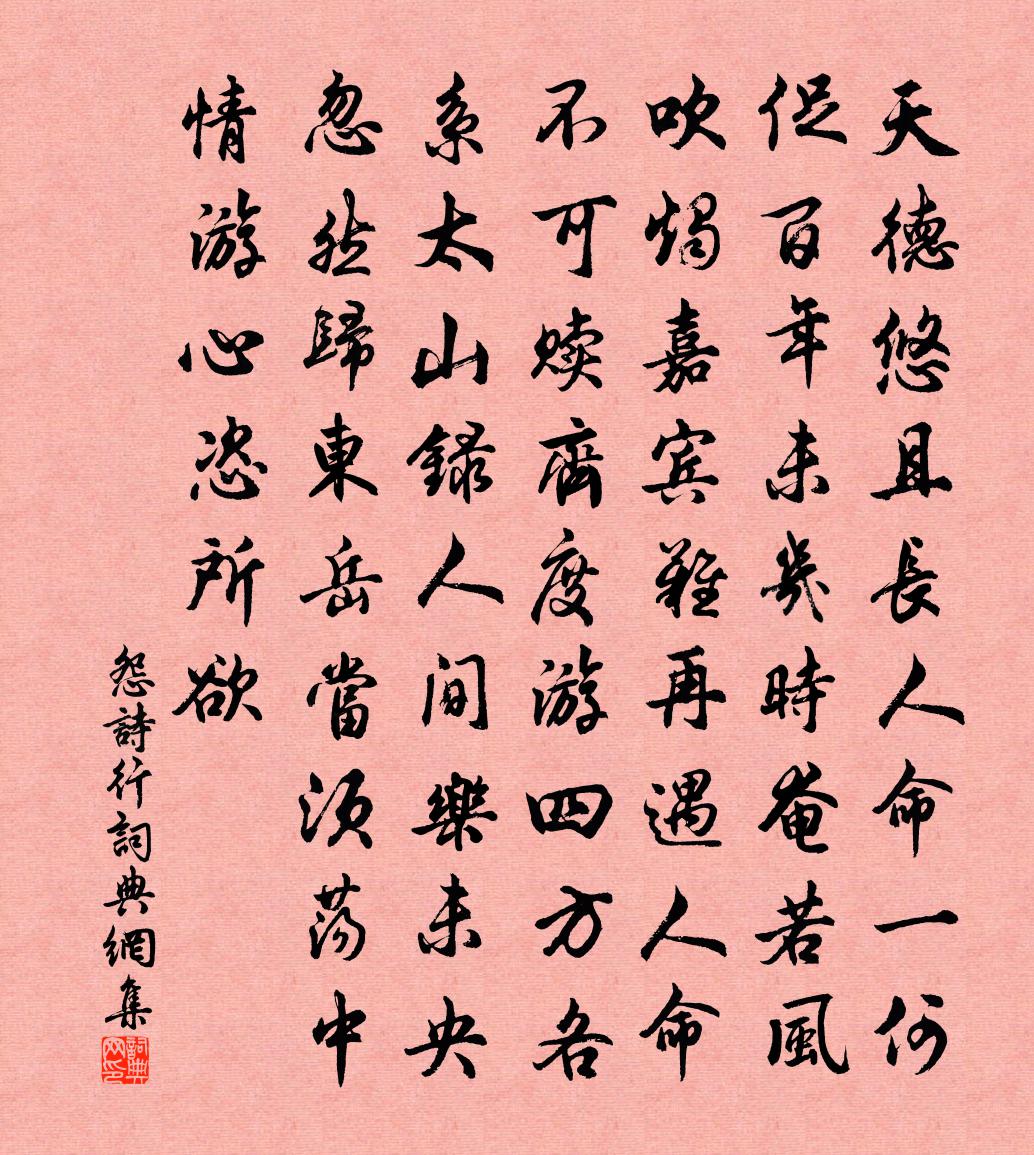 天德悠且長人命一何
促百年未幾時奄若風
吹燭嘉賓難再遇人命
不可赎齊度游四方各
系太山録人间樂未央
忽然歸東岳當須荡中
情游心恣所欲
怨詩行詞典網集
詞典网印